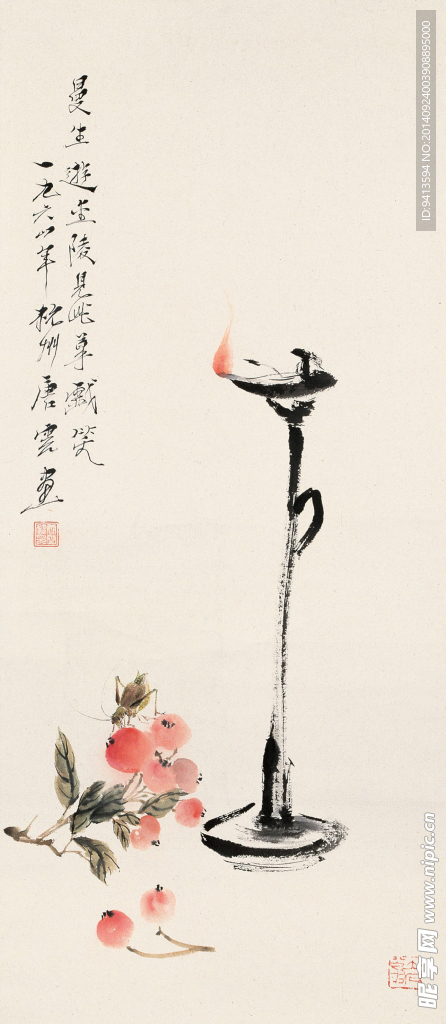 曼生遊金陵見此草戲
一九六年杭州唐雲畫
ID:9413594 NO:20140924003908895000
昵享网 www.nipic.cn